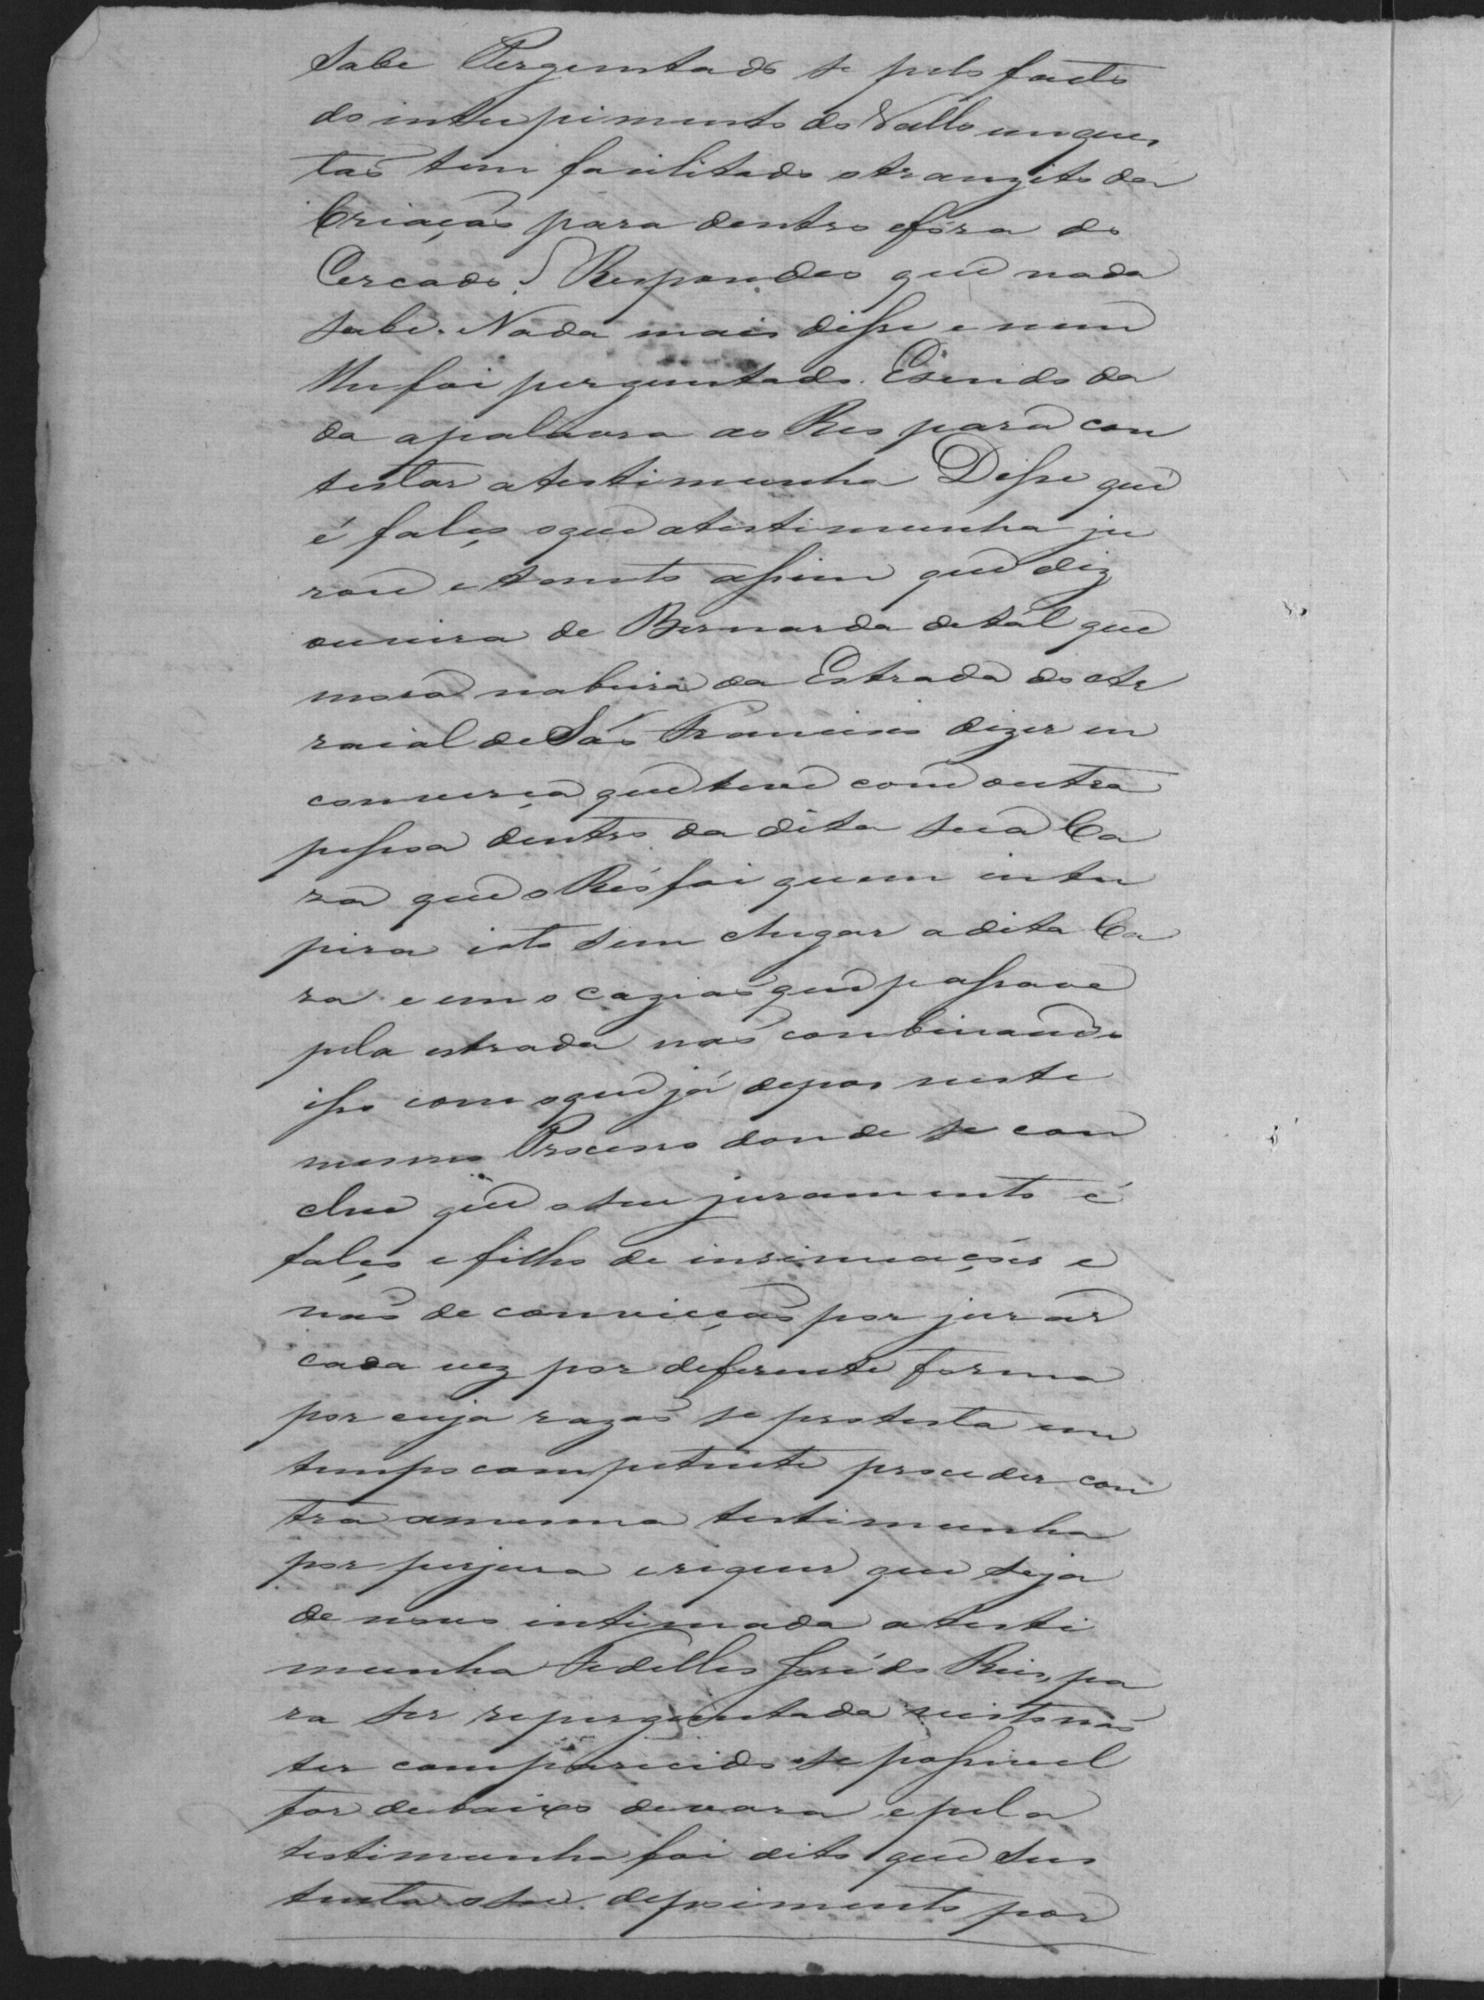 Sabe Perguntado se pelo facto
do intupimento do Vallo em ques
tão tem facilitado otranzito da
Criação para dentro efóra do
Cercado? Respondeo que nada
sabe. Nada mais disse e nem
lhe foi perguntado. Esendo da
da apalavra ao Reo para con
testar atestimunha Disse que
é falço oque atestimunha ju
rou e tanto assim que diz
ouvira de Bernarda detál que
mora nabeira da Estrada do Ar
raial de São Francisco dizer em
converça que teve com outra
pessoa dentro da dita sua Ca
za que o Réo foi quem intu
pira isto sem chegar adita Ca
za e em ocazião que passava
pela estrada não combinando
isso com oque já depos neste
mesmo Processo donde se con
clue que o seu juramento é
falço e filho de insinuações e
não de convicção por jurar
cada vez por deferente forma
por cuja razão se protesta em
tempo competente proceder con
tra amesma testimunha
por perjura erequer que seja
de novo intimada atesti
munha Fidellis José do Reis, pa
ra ser reperguntada visto não
ter comparecido e se possivel
for debaixo devara e pela
testimunha foi dito que sus
tenta o seu depoimento por